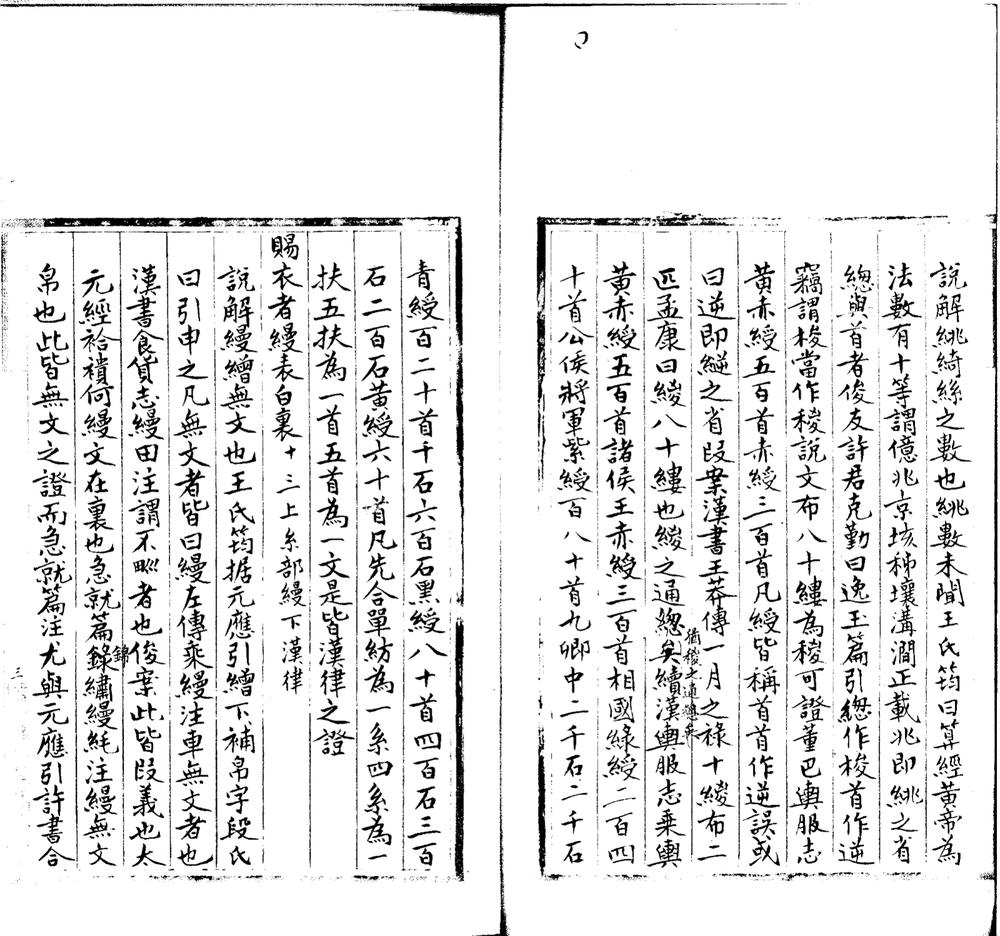 說解絩綺絲之數也絩數未聞王氏筠曰算經黃帝為
法數有十等謂億兆京垓秭壤溝澗正載兆即絩之省
緫與首者俊友許君克勤曰逸玉篇引緫作梭首作逆
竊謂梭當作稯說文布八十縷為稯可證董巴輿服志
黃赤綬五百首赤綬三百首凡綬皆稱首首作逆誤或
曰逆即縌之省段案漢書王莽傳一月之祿十緵布二
匹孟康曰緵八十縷也緵之通緫矣續漢輿服志乘輿
猶稯之通緫矣
黃赤綬五百首諸侯王赤綬三百首相國綠綬二百四
十首公侯將軍紫綬百八十首九卿中二千石二千石
青綬百二十首千石六百石黑綬八十首四百石三百
石二百石黃綬六十首凡先合單紡為一系四系為一
扶五扶為一首五首為一文是皆漢律之證
賜衣者縵表白裏十三上糸部縵下漢律
說解縵繒無文也王氏筠据元應引繒下補帛字段氏
曰引申之凡無文者皆曰縵左傳乘縵注車無文者也
漢書食貨志縵田注謂不甽者也俊案此皆段義也太
元經袷襀何縵文在裏也急就篇錄繡縵䋃注縵無文
錦
帛也此皆無文之證而急就篇注尤與元應引許書合
三